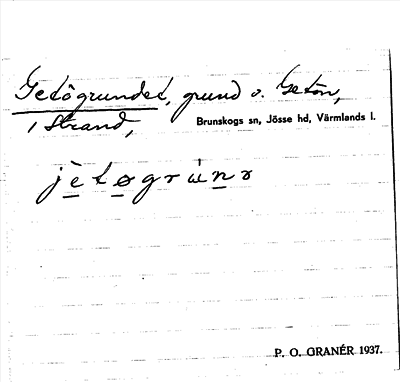 Getögrundet, grund v. Getön,
i Strand,
Brunskogs sn, Jösse hd, Värmlands l.
jètøgrùnə
P. O. GRANÉR 1937.